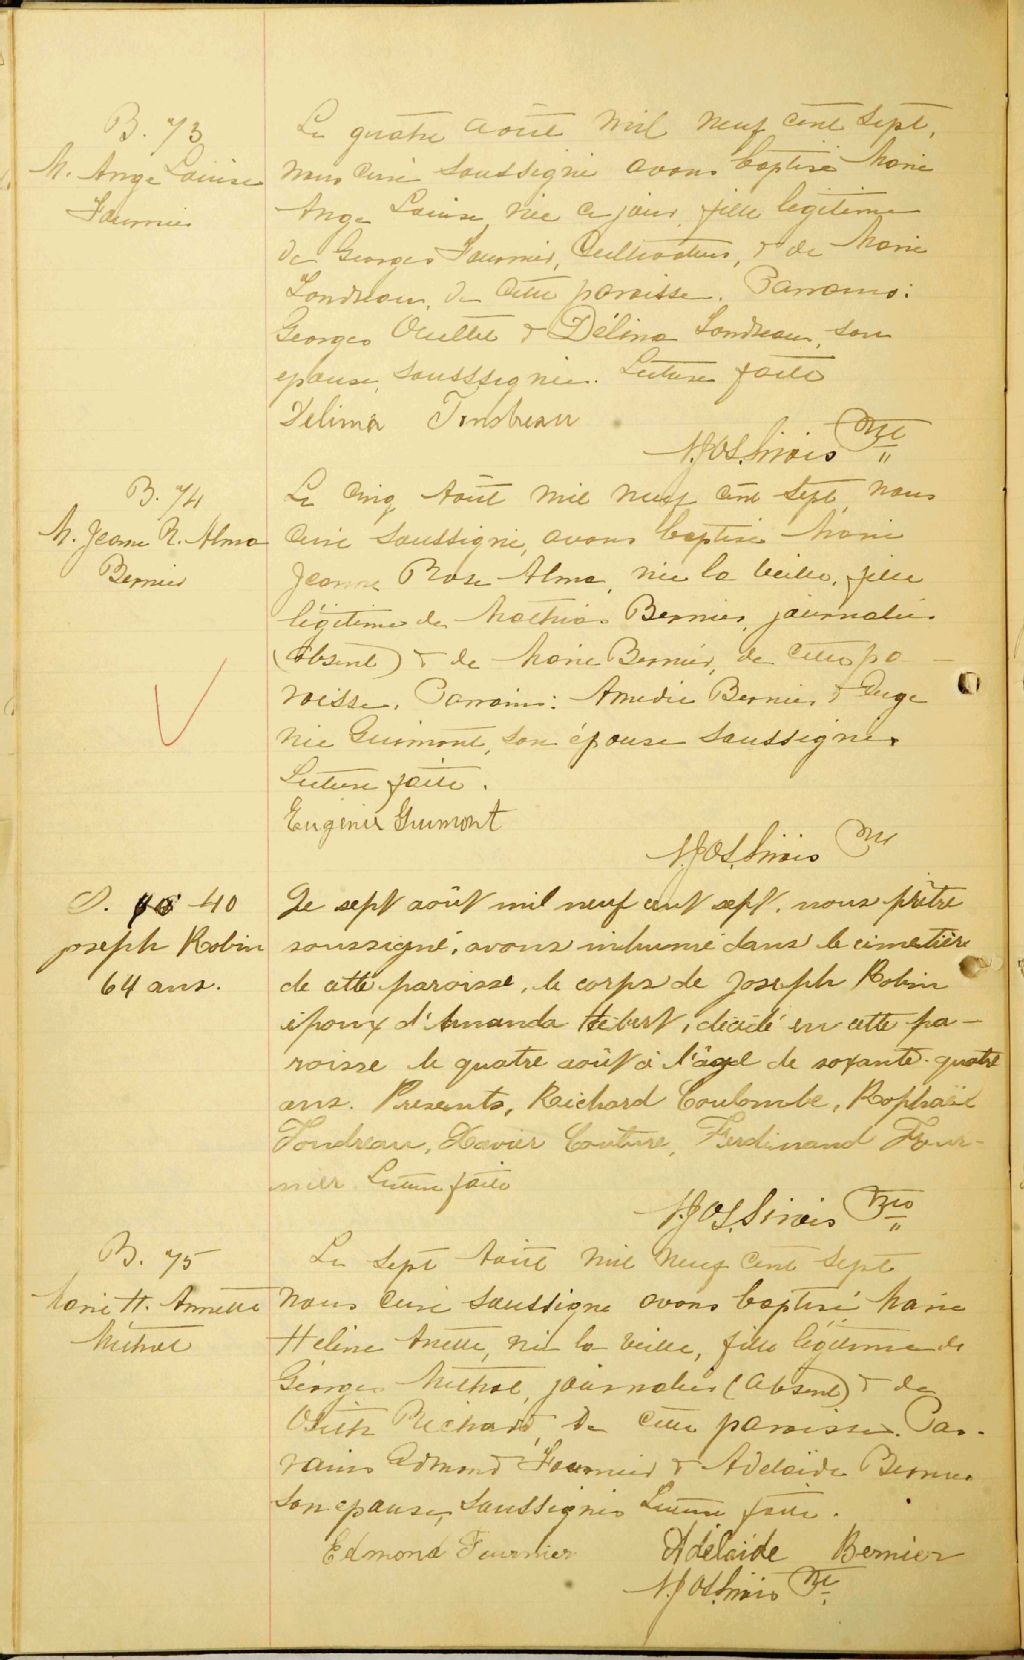 B. 73
M. Ange Louise
Fournier
Le quatre août mil neuf cent sept,
nous curé soussigné avons baptisé Marie
Ange Louise, née ce jour, fille légitime
de Georges Fournier, Cultivateur, & de Marie
de cette paroisse. Parrains:
Georges Ouellet & Délina son
épouse, sousssignée. Lecture faite
Délima
Ptre
B. 74
M. Jeanne R. Alma
Bernier
Le Cinq Août mil neuf cent sept, nous
Curé soussigné, avons baptisé Marie
Jeanne Rose Alma, née la veille, fille
légitime de Mathias Bernier, journalier
(absent) & de Marie Bernier, de cette pa-
roisse. Parrains: Amédée Bernier & Euge
nie Guimont, son épouse soussignée.
Lecture faite.
Eugénie Guimont
Ptre
S. 40
Joseph Robin
64 ans.
Le sept août mil neuf cent sept, nous prêtre
soussigné, avons inhumé dans le cimetière
de cette paroisse, le corps de Joseph Robin
époux d'Amanda Hébert, décédé en cette pa-
roisse le quatre août à l'âge de soixante-quatre
ans. Présents, Richard Coulombe, Raphaël
Tondreau, Xavier Couture, Ferdinand Four-
nier Lecture faite
Ptre
B. 75
Marie H. Annette
Méthot
Le Sept Août mil neuf Cent Sept
Nous Curé soussigné avons baptisé Marie
Hélène Anette, née la veille, fille légitime de
Géorges Méthot, journalier (absent) & de
Richard, de cette paroisse. Par-
rains Edmond Fournier & Adélaïde Bernier
son épouse, soussignés Lecture faite.
Edmond Fournier Adélaide Bernier
Ptre